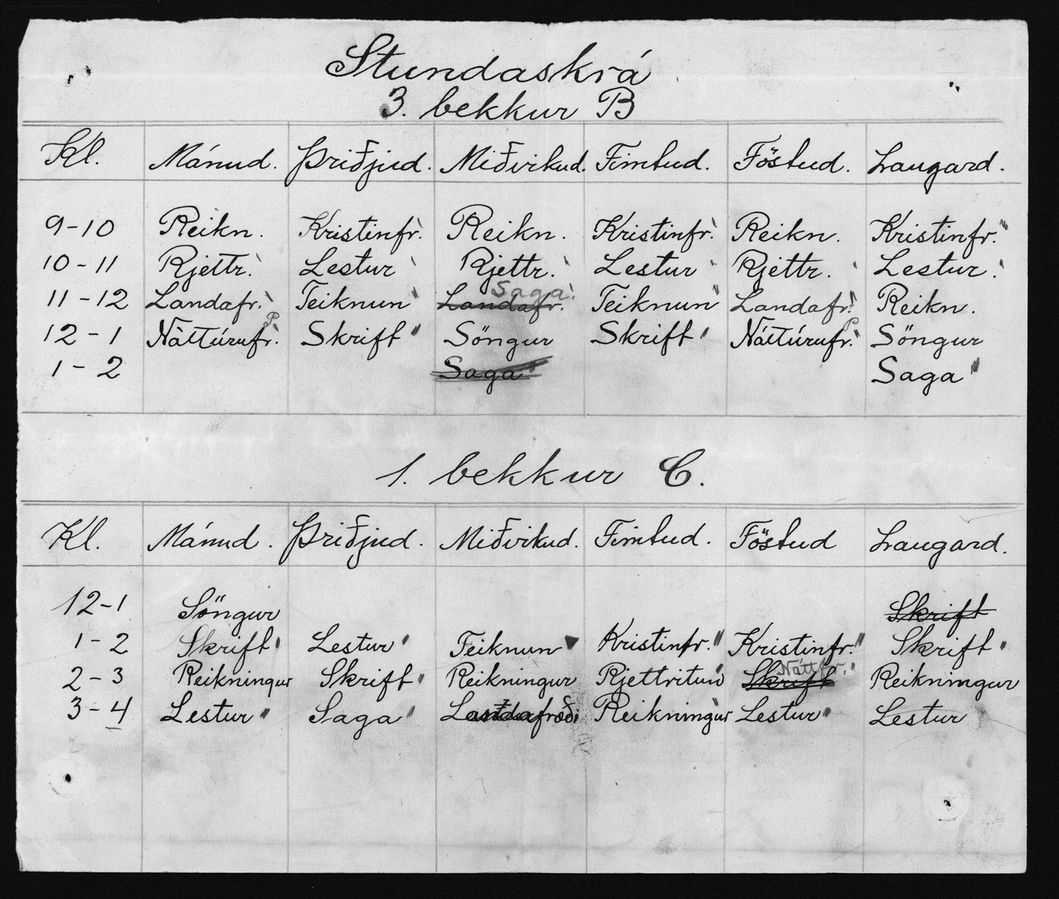 Stundaskrá
3. bekkur B
Kl. Mánud. Þriðjud. Miðvikud. Fimtud. Föstud. Laugard.
9-10 Reikn. Kristinfr. Reikn. Kristinfr. Reikn. Kristinfr.
10-11 Rjettr. Lestur Rjettr. Lestur Rjettr. Lestur
Saga
11-12 Landafr. Teiknun Landafr. Teiknun Landafr. Reikn.
12-1 Náttúrufr. Skrift Söngur Skrift Náttúrufr. Söngur
1-2 Saga Saga
1. bekkur C.
Kl. Mánud. Þriðjud. Miðvikud. Fimtud. Föstud Laugard.
12-1 Söngur Skrift
1-2 Skrift Lestur Teiknun Kristinfr. Kristinfr. Skrift
Náttfr.
2-3 Reikningur Skrift Reikningur Rjettritun Skrift Reikningur
3-4 Lestur Saga Reikningur Lestur Lestur